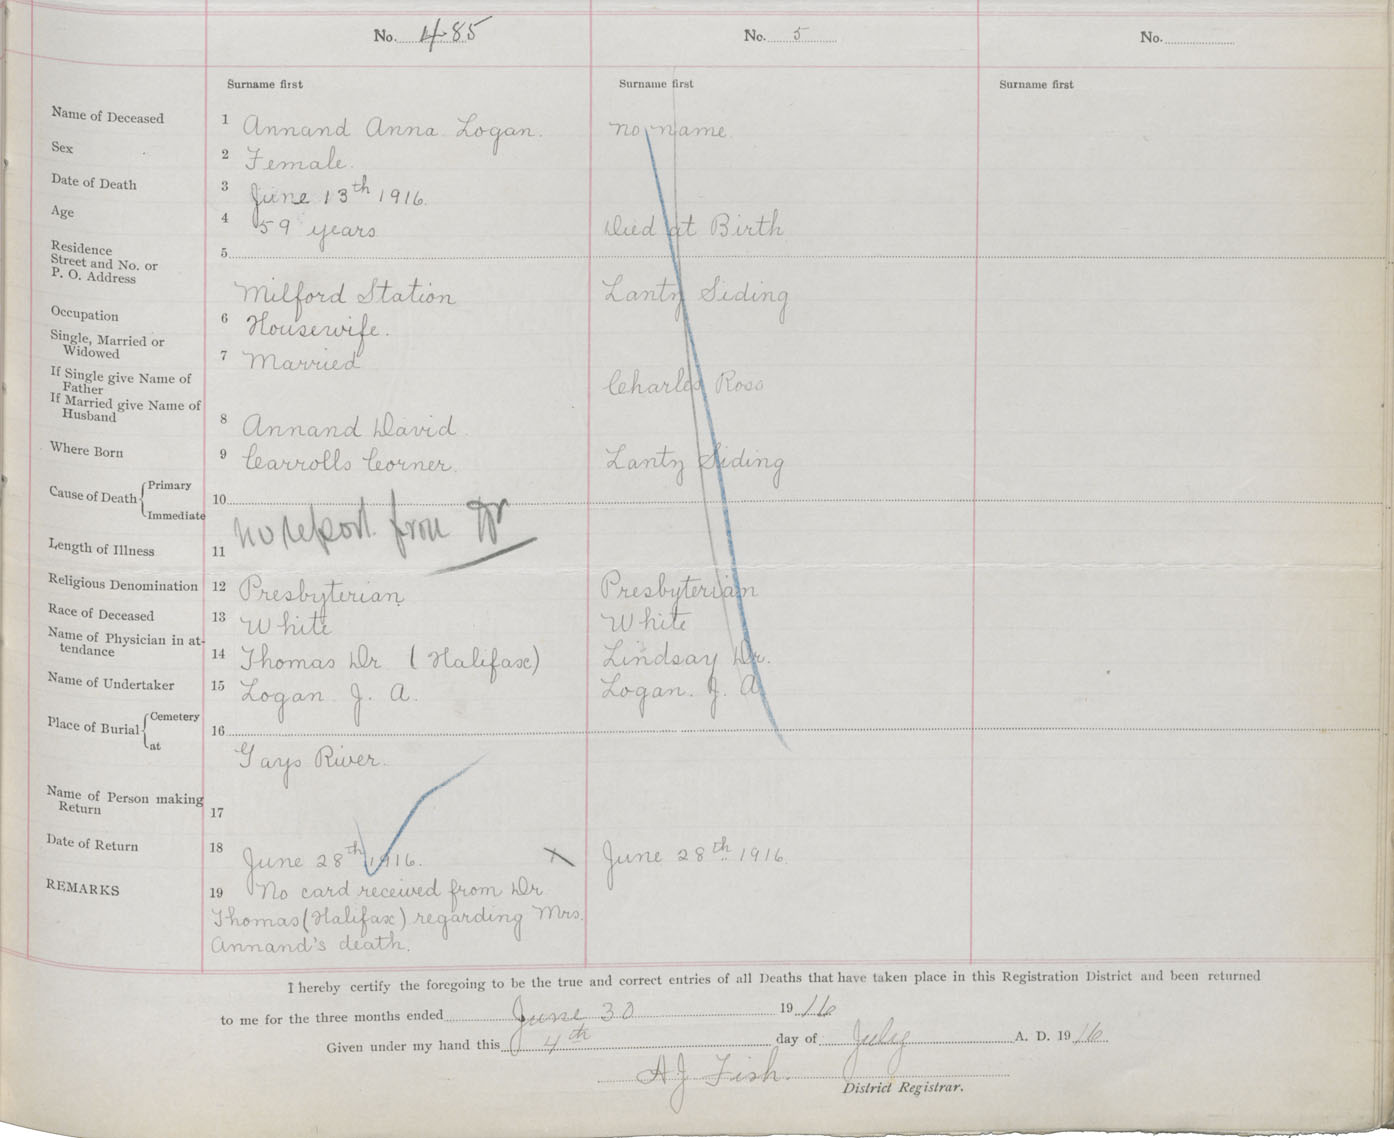 No. 485
No. 5
No.
Surname first
Surname first
Surname first
Name of Deceased 1 Annand Anna Logan. no name
Sex 2 Female.
Date of Death 3 June 13th 1916.
Age 4 59 years Died at Birth
Residence
Street and No. or
P. O. Address
5
Milford Station Lantz Siding
Occupation 6 Housewife.
Single, Married or
Widowed
7 Married
If Single give Name of
Father
Charles Ross
If Married give Name of
Husband
8 Annand David
Where Born 9 Carrolls Corner. Lantz Siding
Cause of Death Primary
10
Immediate
no report from Dr
Length of Illness 11
Religious Denomination 12 Presbyterian Presbyterian
Race of Deceased 13 White White
Name of Physician in at-
tendance
14 Thomas Dr (Halifax) Lindsay Dr.
Name of Undertaker 15 Logan J. A. Logan. J. A
Place of Burial Cemetery
16
at
Gays River.
Name of Person making
Return
17
Date of Return 18 June 28th 1916. x June 28th 1916.
REMARKS 19 No card received from Dr
Thomas (Halifax) regarding Mrs.
Annand's death.
I hereby certify the foregoing to be the true and correct entries of all Deaths that have taken place in this Registration District and been returned
to me for the three months ended June 30 1916
Given under my hand this 4th day of July A. D. 1916
A J Fish.
District Registrar.